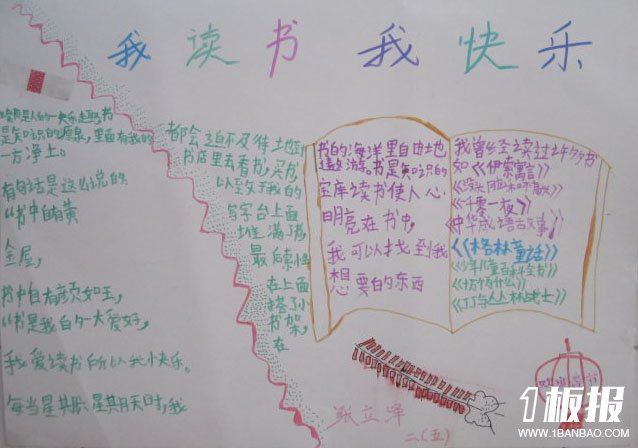 我读书 我快乐
是知识的源泉,里面有我的
一方净土。
有句话是这么说的
“书中自有黄
金屋,
书中自有颜如玉,
“书是我的一大爱好,
我爱读书所以我快乐。
每当星期六星期天时,我
都会迫不及待地到
书店里去看书,买书
以致于我的
写字台上面
堆满了书,
最后索性
在上面
搭个小
书架,
在
书的海洋里自由地
遨游。书是知识的
宝库读书使人心
明亮在书中,
我可以找到我
想要的东西
我曾经读过许多书
如《伊索寓言》
《一千零一夜》
《中华成语故事》
《格林童话》
《少年儿童百科全书》
《十万个为什么》
《丁丁与丛林战士》
张立泽
二(五)
1板报
WWW.1BANBAO.COM